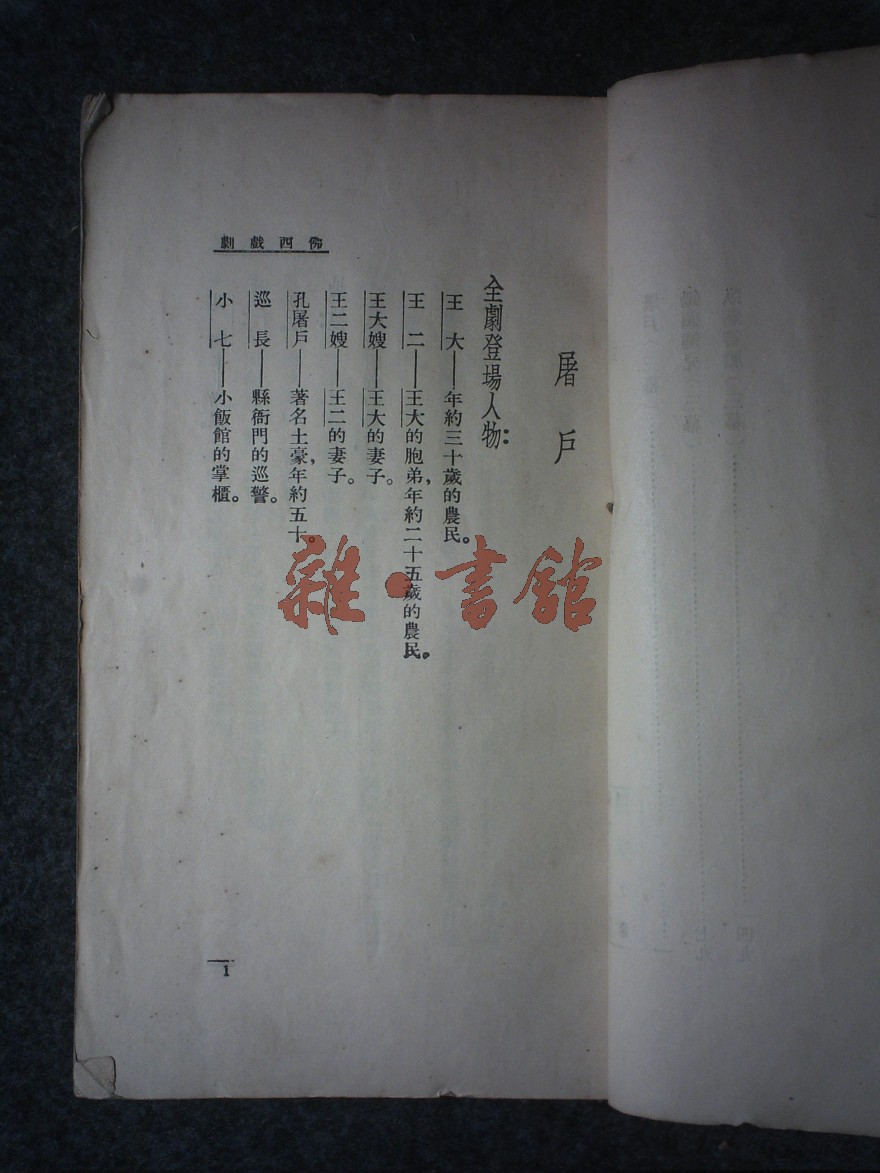 佛西戲劇
屠戶
全劇登場人物：
王大——年約三十歲的農民。
王二——王大的胞弟，年約二十五歲的農民。
王大嫂——王大的妻子。
王二嫂——王二的妻子。
孔屠戶——著名土豪，年約五十。
巡長——縣衙門的巡警。
小七——小飯館的掌櫃。
1
雜·書館